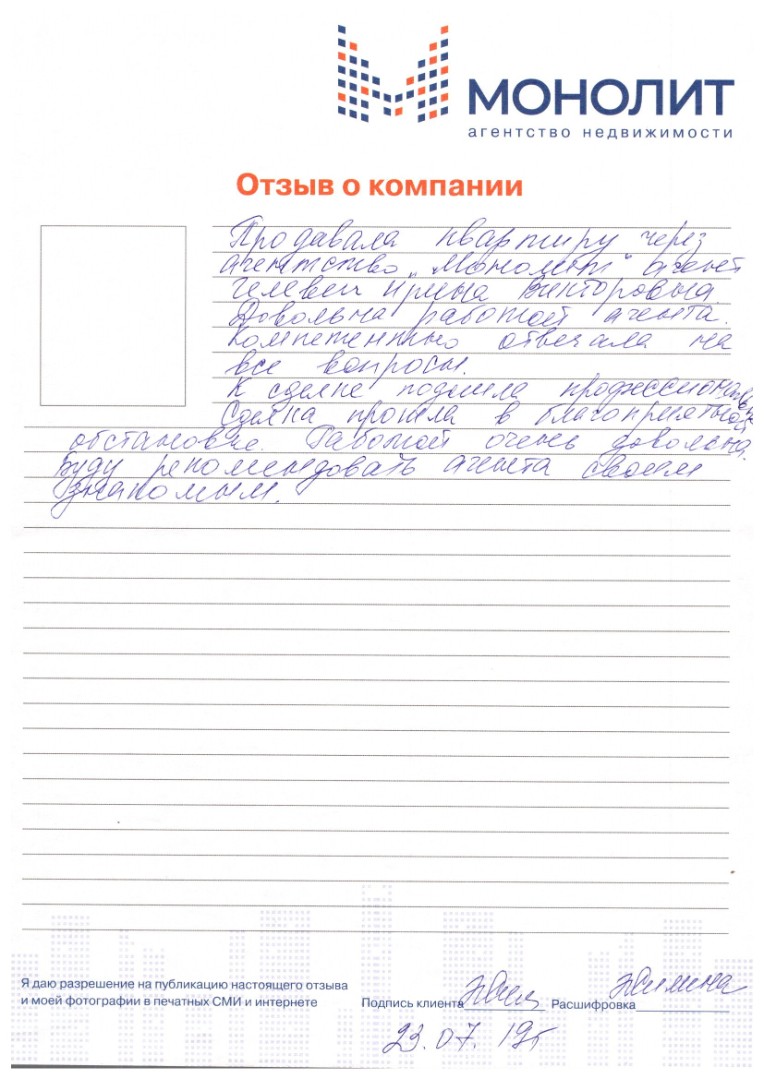 МОНОЛИТ
агентство недвижимости
Отзыв о компании
Продавала квартиру через
агентство „Монолит" агент
Ирина Викторовна.
Довольна работой агента.
Компетентно отвечала на
все вопросы.
К сделке подошла профессионально
Сделка прошла в благоприятной
обстановке. Работой очень довольна.
Буду рекомендовать агента своим
знакомым.
Я даю разрешение на публикацию настоящего отзыва
и моей фотографии в печатных СМИ и интернете
Подпись клиента Расшифровка
23.07.19г